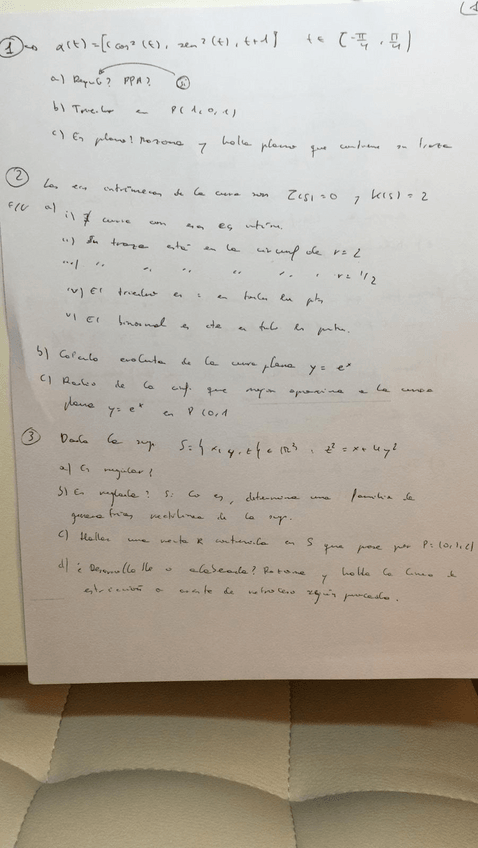 (1
① α(t) = [(cos²(t), sen²(t), t+1] t ∈ (-π/4, π/4)
a) Regular? PPA?
b) Triedro en P(1,0,1)
c) Es plana? Razona y halla plano que contiene su traza
② Las ecs intrínsecas de la curva son τ(s)=0 y k(s)=2
F/V a) i) ∄ curva con esas ecs intrín.
ii) Su traza está en la circunf de r=2
iii) " " " " " " r=1/2
iv) El triedro es = en todos los pts
v) El binormal es cte en todos los puntos.
b) Calcula evoluta de la curva plana y = eˣ
c) Radio de la circunf. que mejor aproxima a la curva
plana y=eˣ en P(0,1
③ Dada la sup. S={x,y,z} ∈ ℝ³, z²=x+4y²
a) Es regular?
b) Es reglada? Si lo es, determina una familia de
generatrices rectilíneas de la sup.
c) Hallar una recta R contenida en S que pase por P=(0,1,
d) ¿Desarrollable o alabeada? Razona y halla la línea de
estricción o arista de retroceso según proceda.